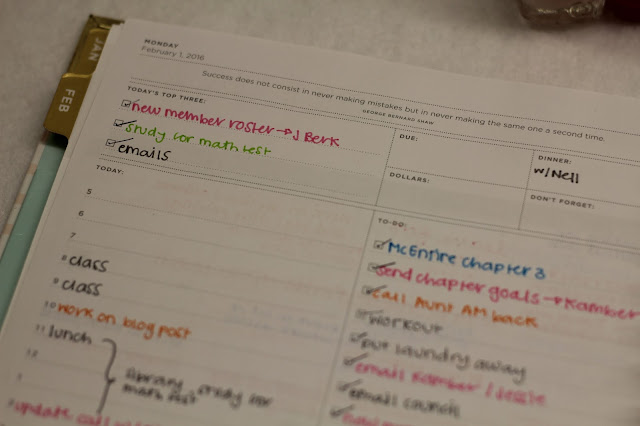 JAN
FEB
MONDAY
February 1, 2016
Success does not consist in never making mistakes but in never making the same one a second time.
GEORGE BERNARD SHAW
TODAY'S TOP THREE:
new member roster → J Berk
study for math test
emails
DUE:
DINNER:
w/Nell
DOLLARS:
DON'T FORGET:
TODAY:
5
6
7
8 class
9 class
10 work on blog post
11 lunch
12
1
library, study for
math test
2 update
TO-DO:
McEntire chapter 3
send chapter goals → Kamber
call Aunt AM back
workout
put laundry away
email Kamber / Jessie
email launch